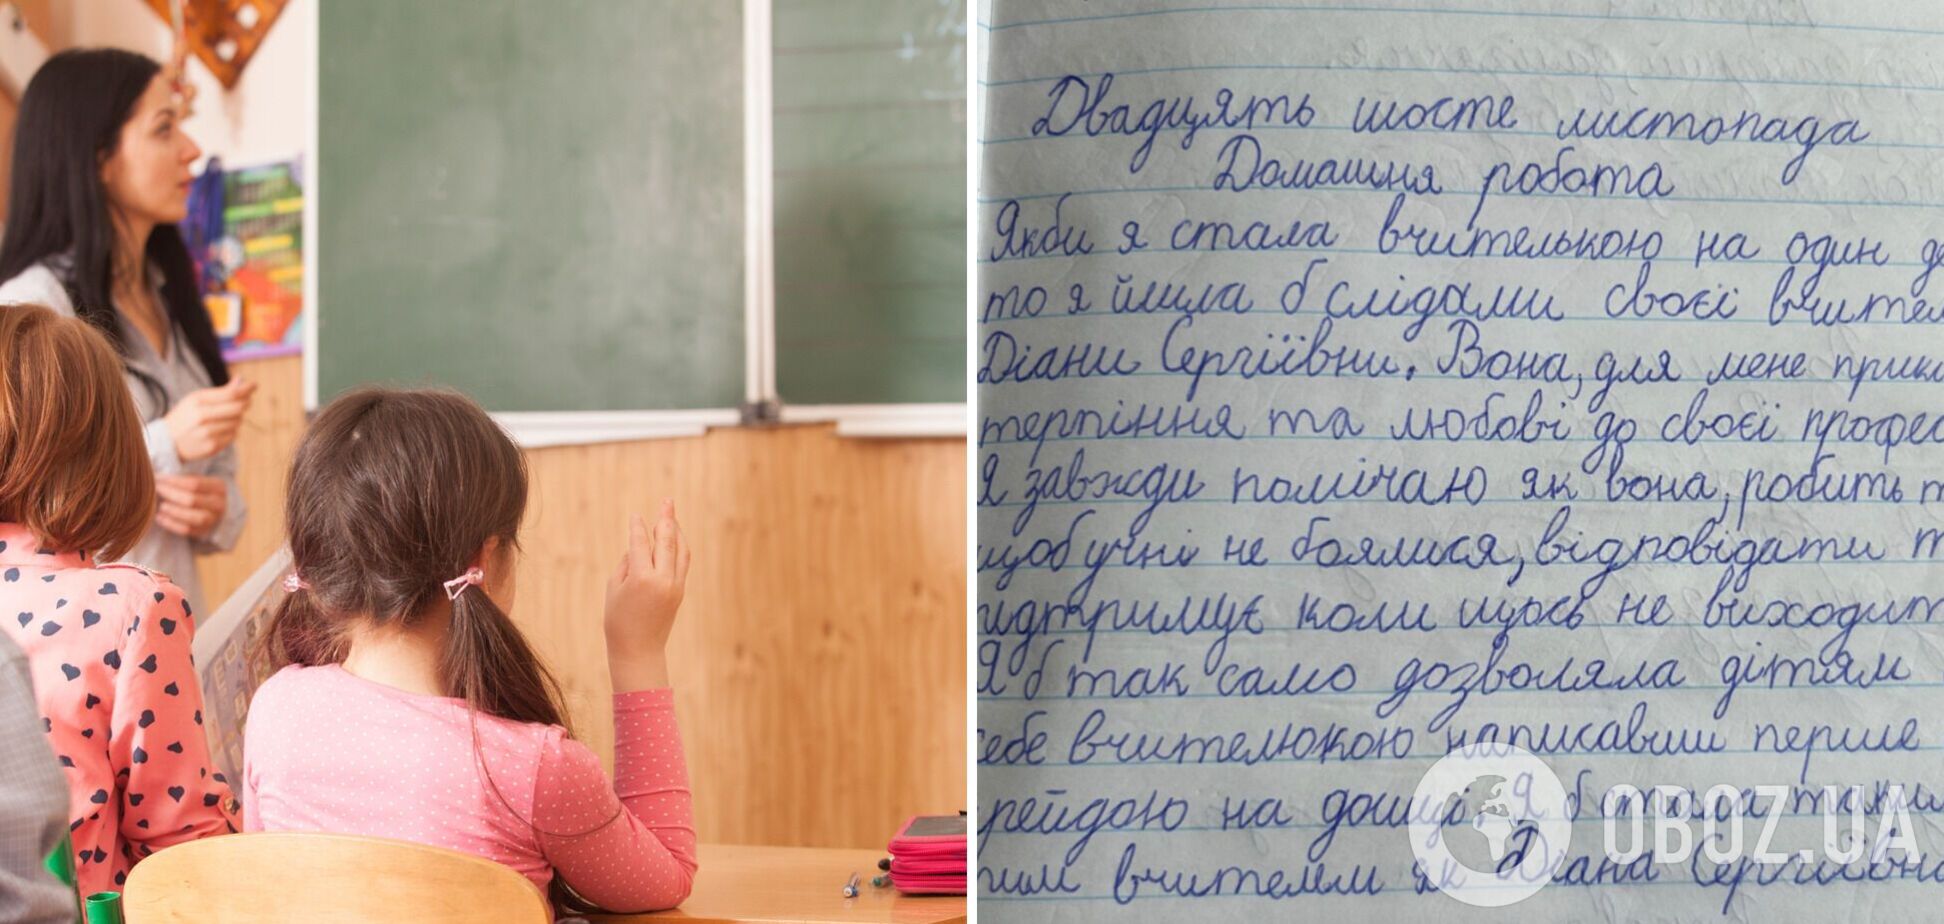 Двадцять шосте листопада
Домашня робота
Якби я стала вчителькою на один де
то я йшла б слідами своєї вчител
Діани Сергіївни. Вона, для мене прикл
терпіння та любові до своєї професі
Я завжди помічаю як вона, робить т
щоб учні не боялися, відповідати т
підтримує коли щось не виходит
Я б так само дозволяла дітям
себе вчителюкою написавши перше
крейдою на дошці. Я б стала таким
вчителем як Діана Сергіївна
OBOZ.UA